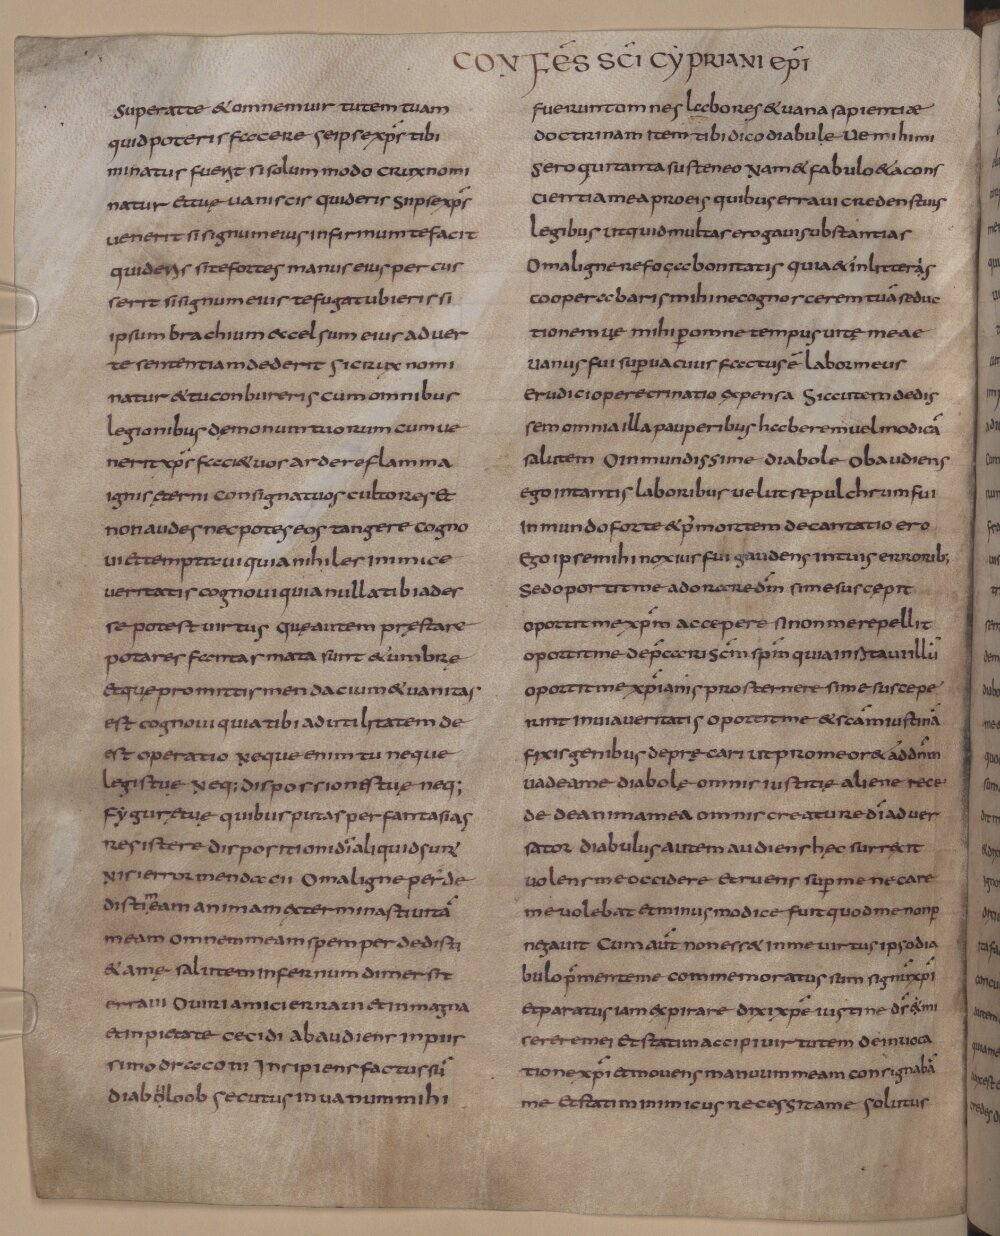 CONFES SCI CYPRIANI EPI
superatte & omnem uirtutem tuam
quid poteris facere se ipse xps tibi
minatus fuerit si solummodo crux nomi
natur et tue uaniscis quid eris Si ipse xps
uenerit si signum eius infirmum te facit
quid eris si te fortes manus eius percus
serit si signum eius te fugat ubi eris si
ipsum brachium excelsum eius aduer
te sententiam dederit Si crux nomi
natur & tu conbureris cum omnibus
legionibus demonum tuorum cum ue
nerit xps faci& uos ardere flamma
ignis eterni consignatuos cultores Et
non audes nec potes eos tangere cogno
ui Et temptaui quia nihil es inimice
ueritatis cognoui quia nulla tibi ades
se potest uirtus que autem prestare
potares facintas mata sunt & umbre
Et que promittis mendacium & uanitas
est cognoui quia tibi ad utilitatem de
est operatio Neque enim tu neque
legis tue Neq; disposcionis tue neq;
Fygure tue quibus putas per fantasias
resistere dispositioni di aliquid sunt
Nisi error mendacii O maligne perde
disti meam animam exterminasti uita
meam omnem meam spem perdedisti
& ame salutem infernum dimersit
erraui O uiri amici erraui et in magna
et inpietate cecidi abaudiens inpiis
simo draconi Insipiens factus su
diabolo ob secutus in uanum mihi
fuerunt omnes labores & uana sapientiae
doctrinam item tibi dico diabule Ue mihi mi
sero qui tanta susteneo Nam & fabulo & a cons
cientia mea pro eis quibus erraui credens tuis
legibus ut quid multas erogaui substantias
O maligne refoga bonitatis quia & in litteras
cooperabaris mihi ne cognoscerem tua seduc
tionem ue mihi p omne tempus uite meae
uanus fui supuacuus factus e labor meus
Erudicio peregrinatio expensa Sic autem dedis
sem omnia illa pauperibus haberem uel modica
salutem O inmundissime diabole Obaudiens
ego in tantis laboribus uelut sepulchrum fui
in mundo forte & p mortem decantatio ero
Ego ipse mihi noxius fui gaudens in tuis errorib;
Sed oportit me adorare dm si me suscepit
oportit me xpm accepere si non me repellit
oportit me depcari scm spm quia inistaui illu
oportit me xpianis prosternere si me suscepe
runt in uia ueritatis oportit me & scam iustina
fixis genibus deprecari ut pro me or& ad dnm
uade a me diabole omnis iustitie aliene rece
de de anima mea omnis creature di aduer
sator diabulus autem audiens hec surrexit
uolens me occidere et ruens sup me necare
me uolebat et minus modice fuit quod me non p
negauit Cum aut non ess& in me uirtus ipso dia
bulo pmente me commemoratus sum signu xpi
Et paratus iam expirare dixi xpe iustine ds & mi
serere mei Et statim accipi uirtutem de inuoca
tione xpi et mouens manuum meam consignaba
me Et statim inimicus recessit a me solutus